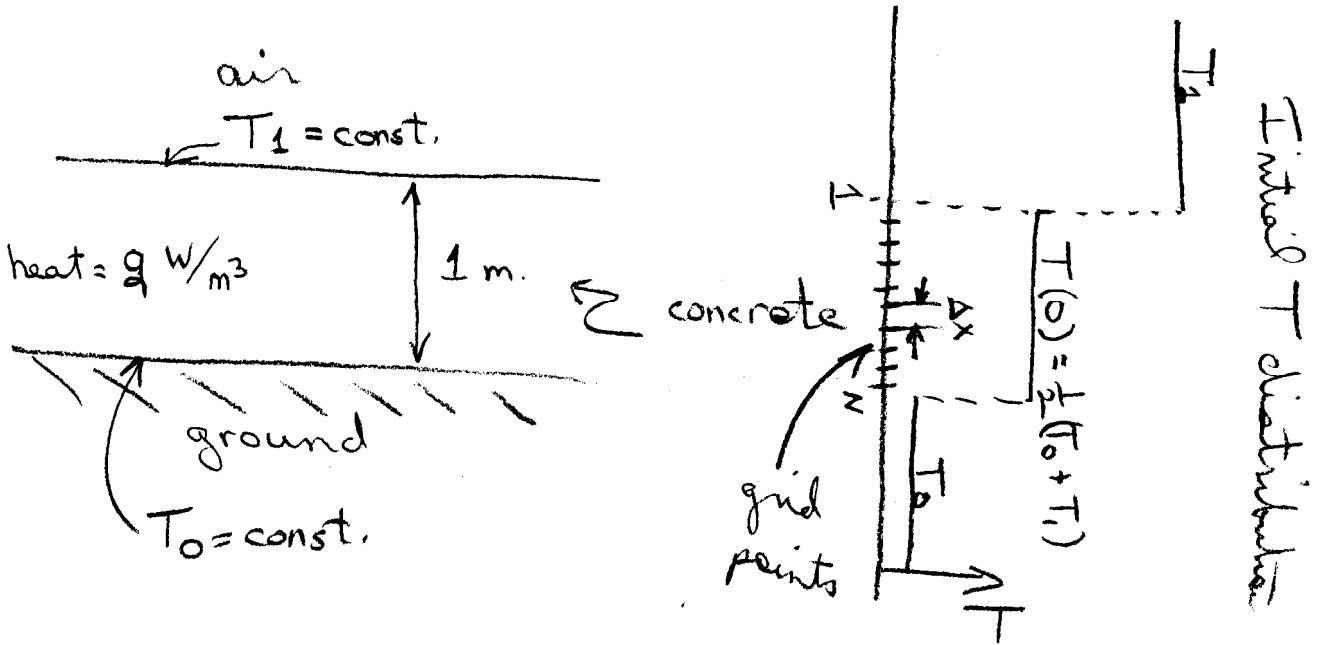 air
T₁ = const.
heat = q W/m³
1 m.
concrete
ground
T₀ = const.
1
Δx
N
grid
points
T₁
T(0) = ½(T₀ + T₁)
T₀
T
Initial T distribution